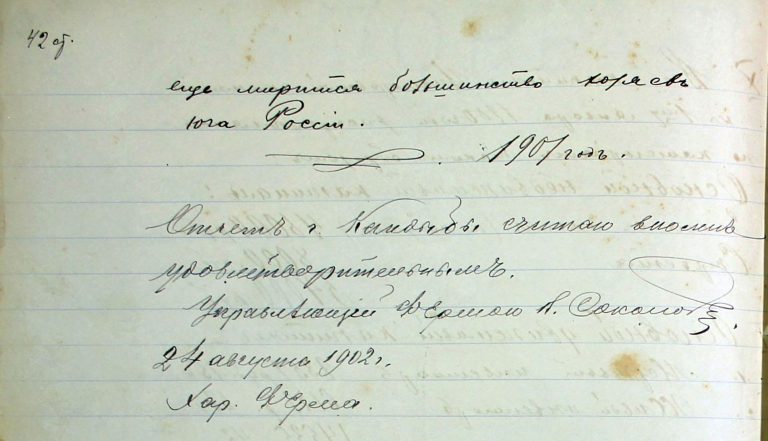 42 ст.
еще мирится большинство хозяевъ
юга Россіи.
1901 годъ.
Отчетъ г. Кандыбы считаю вполнѣ
удовлетворительнымъ.
Управляющій Фермою А. Соколовскій
24 августа 1902 г.
Хар. Ферма.